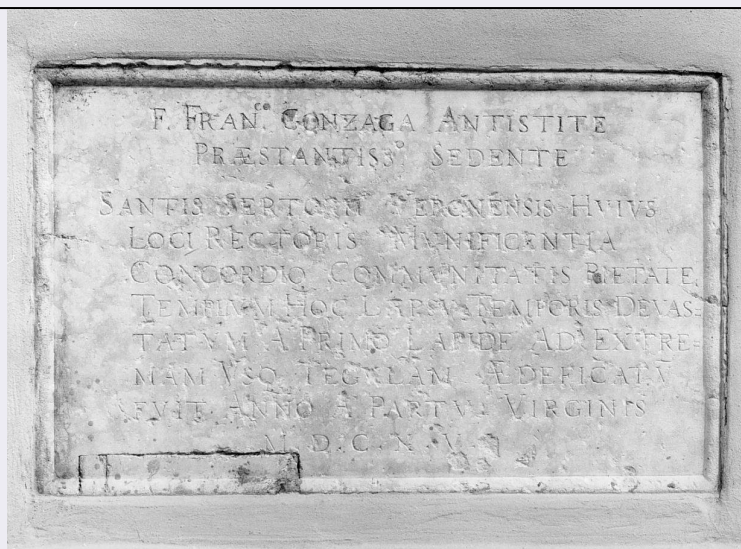 F. FRAN.co GONZAGA ANTISTITE
PRÆSTANTISS.o SEDENTE
SANTIS HVIVS
LOCI RECTORIS MVNIFICENTIA
CONCORDIQ COMMVNITATIS PIETATE
TEMPLVM HOC LAPSV TEMPORIS DEVAS=
TATVM A PRIMO LAPIDE AD EXTRE=
MAM VSQ TEGVLAM ÆDEFICATV
FVIT ANNO A PARTV VIRGINIS